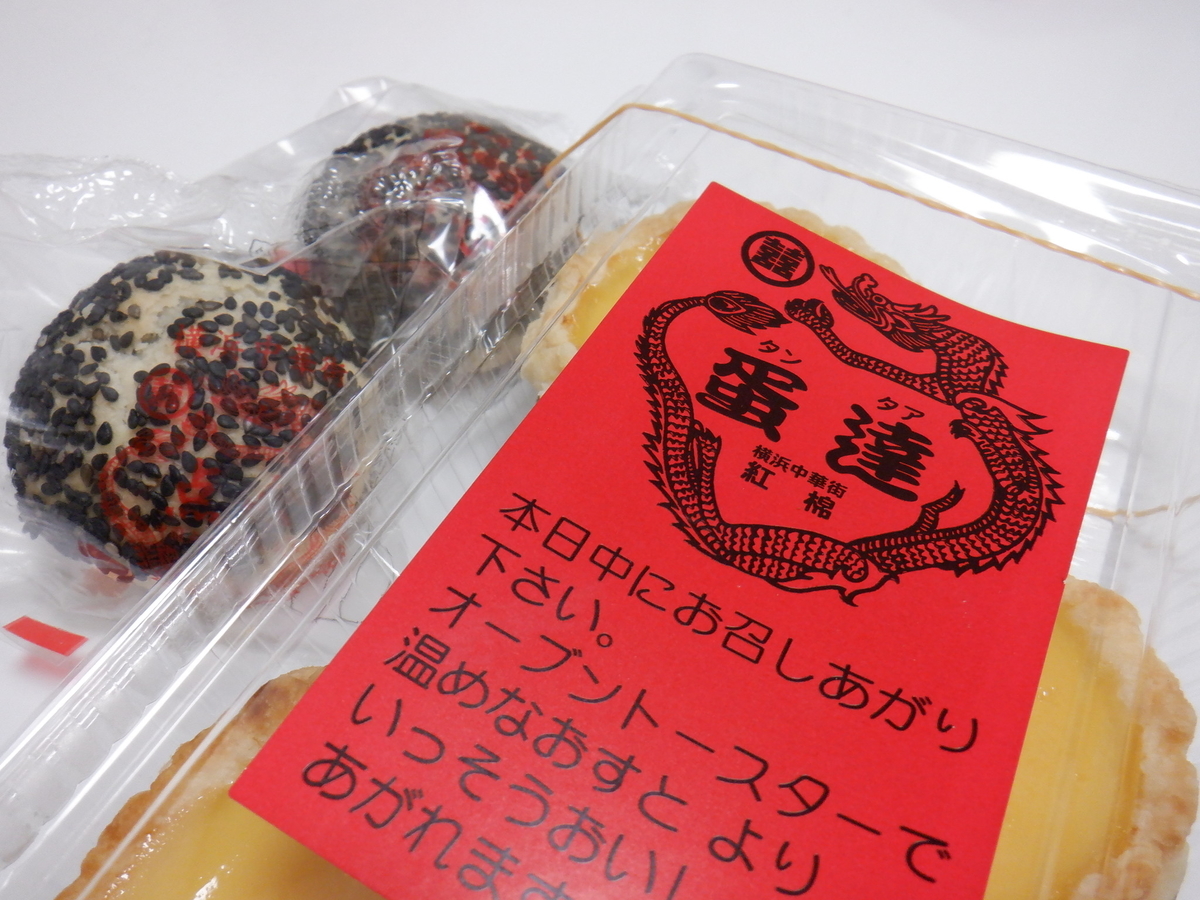 囍
タン タア
蛋 達
横浜中華街
紅 棉
本日中にお召しあがり
下さい。
オーブントースターで
温めなおすとより
いっそうおいし
あがれます